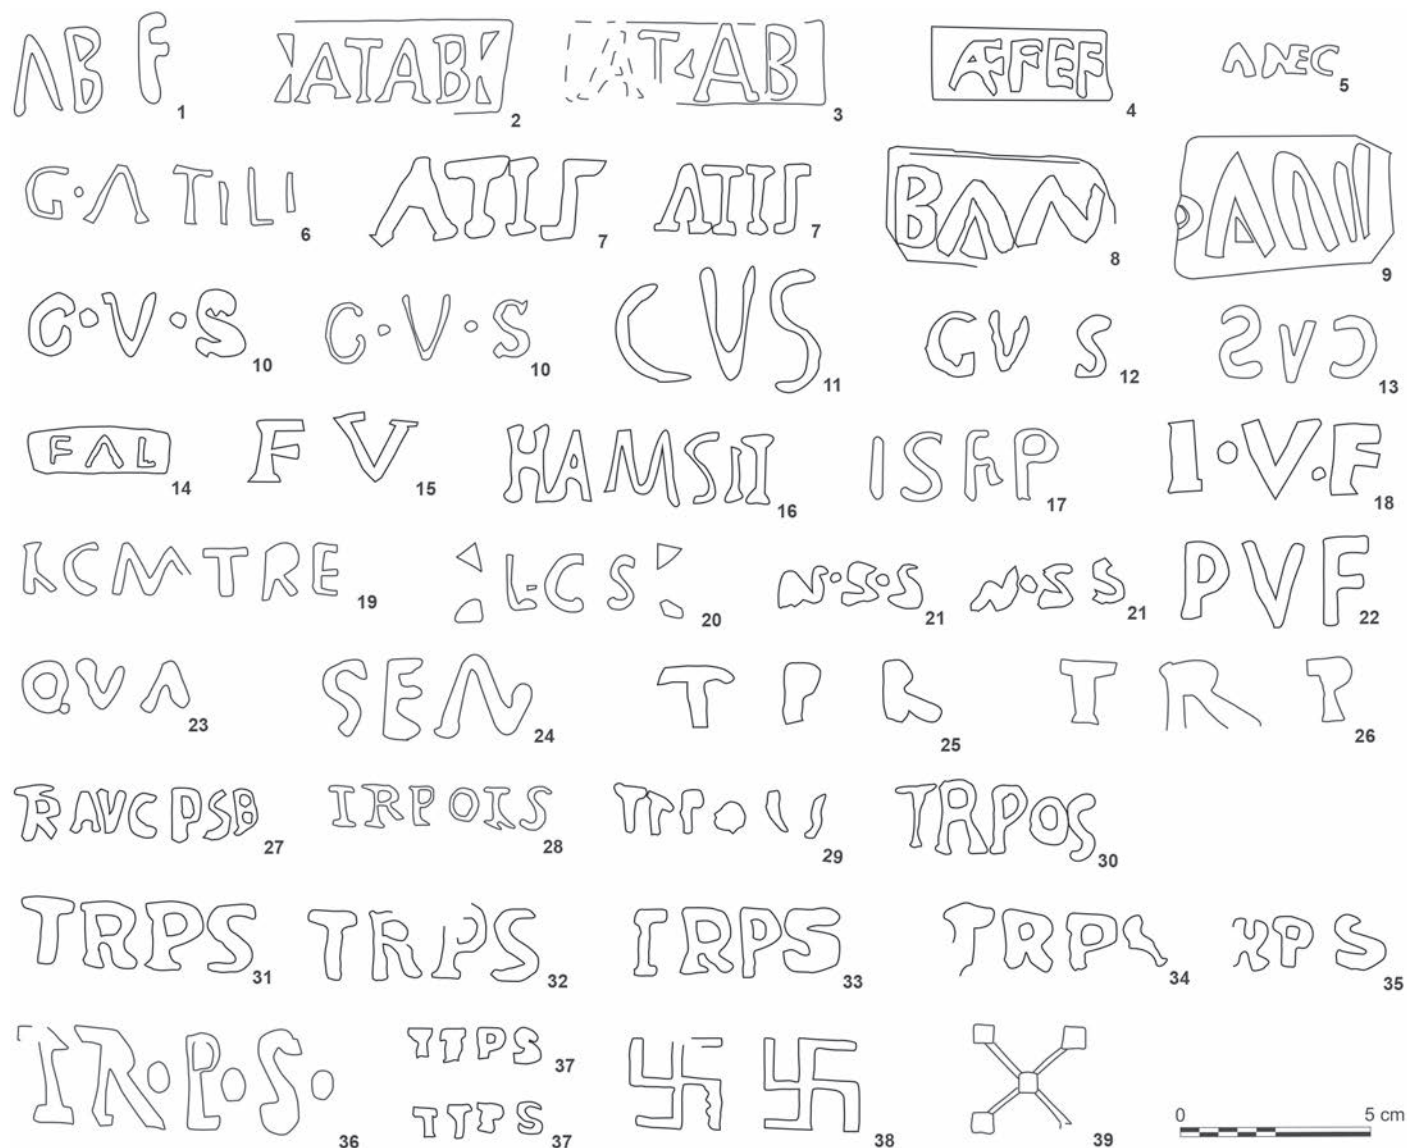 ΛB F 1 ATABK 2 AT AB 3 ÆFEF 4 ΛNEC 5
G·Λ TILI 6 ΛTIS 7 ΛTIIS 7 BAN 8 ANII 9
C·V·S 10 C·V·S 10 CVS 11 GV S 12 SVC 13
FΛL 14 F V 15 HAMSII 16 ISHP 17 I·V·F 18
KCMTRE 19 L·CS 20 N·S·S 21 N·SS 21 PVF 22
QVΛ 23 SEN 24 T P R 25 T R P 26
TRAVCPSB 27 IRPOIS 28 29 TRPOS 30
TRPS 31 TRPS 32 IRPS 33 TRPS 34 RPS 35
TR·P·S· 36 TTPS 37 38 39 0 5 cm
TTPS 37